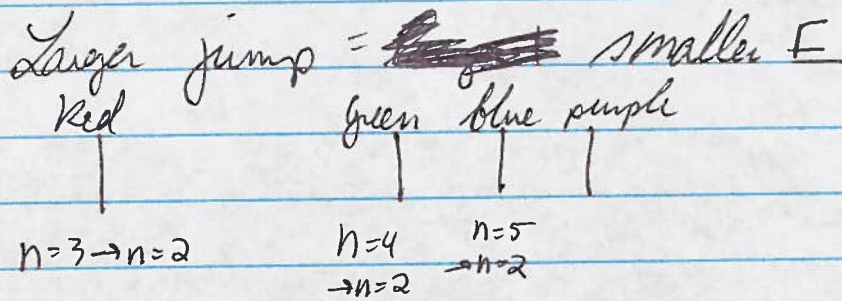 Larger jump = smaller E
Red green blue purple
n=3→n=2 n=4 n=5
→n=2 →n=2